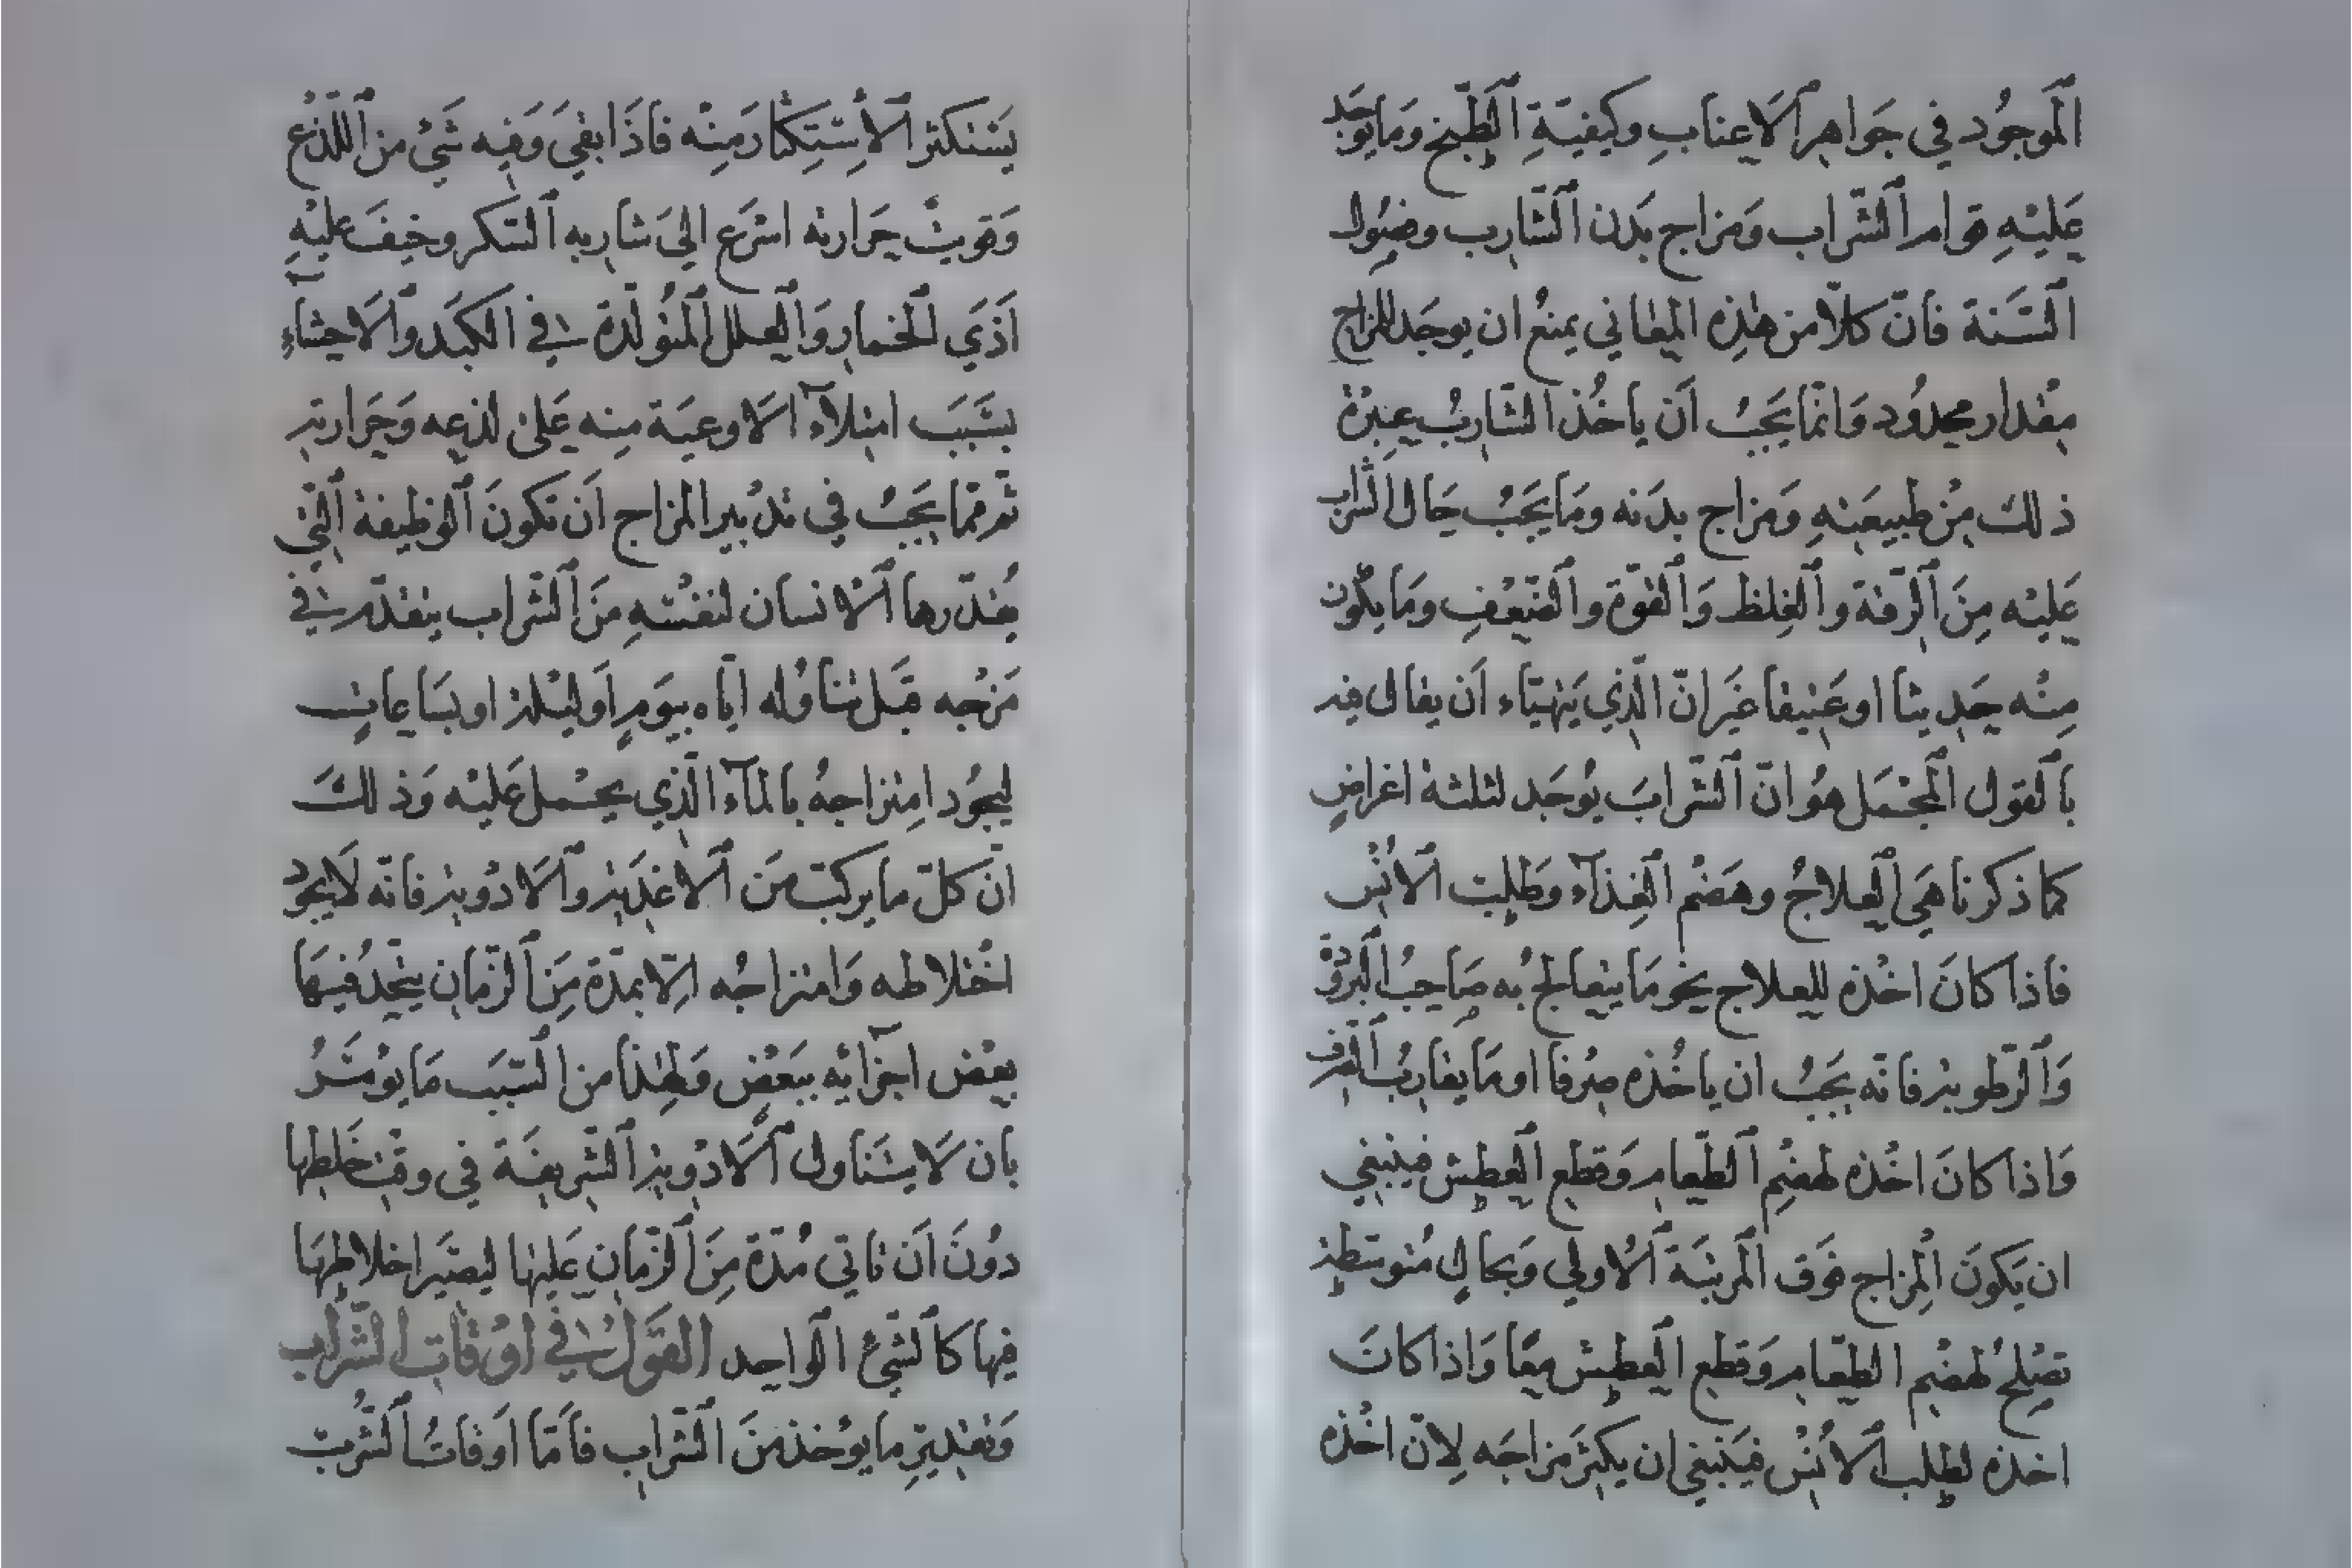 الموجود في جواهر الاعناب وكيفية الطبخ وما يوجد
عليه قوام الشراب ومزاج بدن الشارب وفصول
السنة فانّ كلّا من هذه المعاني يمنع ان يوجد للمزاج
مقدار محدود وانّما يجب أن ياخذ الشارب عبرة
ذلك من طبيعته ومزاج بدنه وما يجب حال الشراب
عليه من الرقة والغلظ والقوة والضعف وما يكون
منه حديثا او عتيقا غير انّ الذي يتهيّاء أن يقال فيه
بالقول المجمل هو انّ الشراب يوجد لثلثة اغراض
كما ذكرنا هي العلاج وهضم الغذآء وطلب الانس
فاذا كان اخذه للعلاج نحو ما يتعالج به صاحب البرودة
والرطوبة فانّه يجب ان ياخذه صرفا او ما يقارب الصرف
واذا كان اخذه لهضم الطعام وقطع العطش فينبغي
ان يكون المزاج فوق المرتبة الاولي وبحال متوسّطة
تصلح لهضم الطعام وقطع العطش معًا واذا كان
اخذه لطلب الانس فينبغي ان يكثر مزاجه لانّ اخذه
يستكثر الاستكثار منه فاذا بقي وفيه شئ من اللذع
وقويت حرارته اسرع الي شاربه السكر وخيف عليه
اذي الخمار والعلل المتولّدة في الكبد والاحشآء
بسبب امتلآء الاوعية منه على لذعه وحرارته
ثم ممّا يجب في تدبير المزاج ان تكون الوظيفة التي
يقدّرها الانسان لنفسه من الشراب يتقدّم في
مزجه قبل تناوله ايّاه بيوم او ليلة او بساعات
ليجود امتزاجه بالمآء الذي يحمل عليه وذلك
انّ كلّ ما يركب من الاغذية والادوية فانّه لا يجود
اختلاطه وامتزاجه الّا بمدّة من الزمان يتّحد فيها
بعض اجزآئه ببعض ولهذا من السبب ما يومر
بان لا يتناول الادوية الشريفة في وقت خلطها
دون أن تاتي مدّة من الزمان عليها ليصير اخلاطها
فيها كالشئ الواحد القول في اوقات الشراب
وتقدير ما يوخذ من الشراب فامّا اوقات الشرب